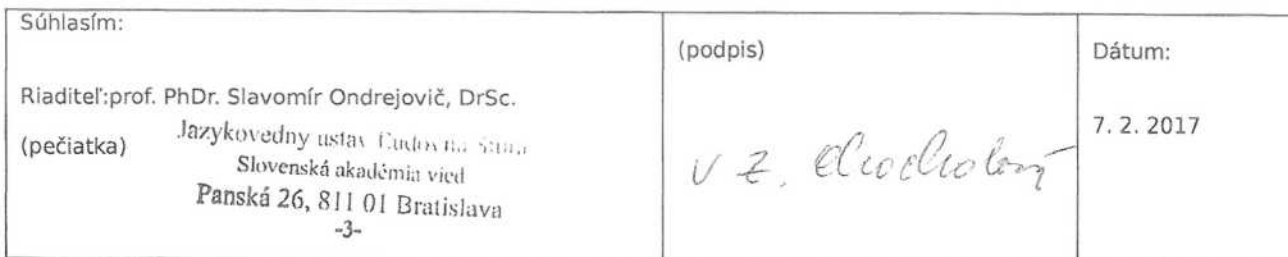 Súhlasím:
Riaditeľ:prof. PhDr. Slavomír Ondrejovič, DrSc.
(pečiatka)
Jazykovedny ustav Ľudovíta Štúra
Slovenská akadémia vied
Panská 26, 811 01 Bratislava
-3-
(podpis)
v z.
Dátum:
7. 2. 2017